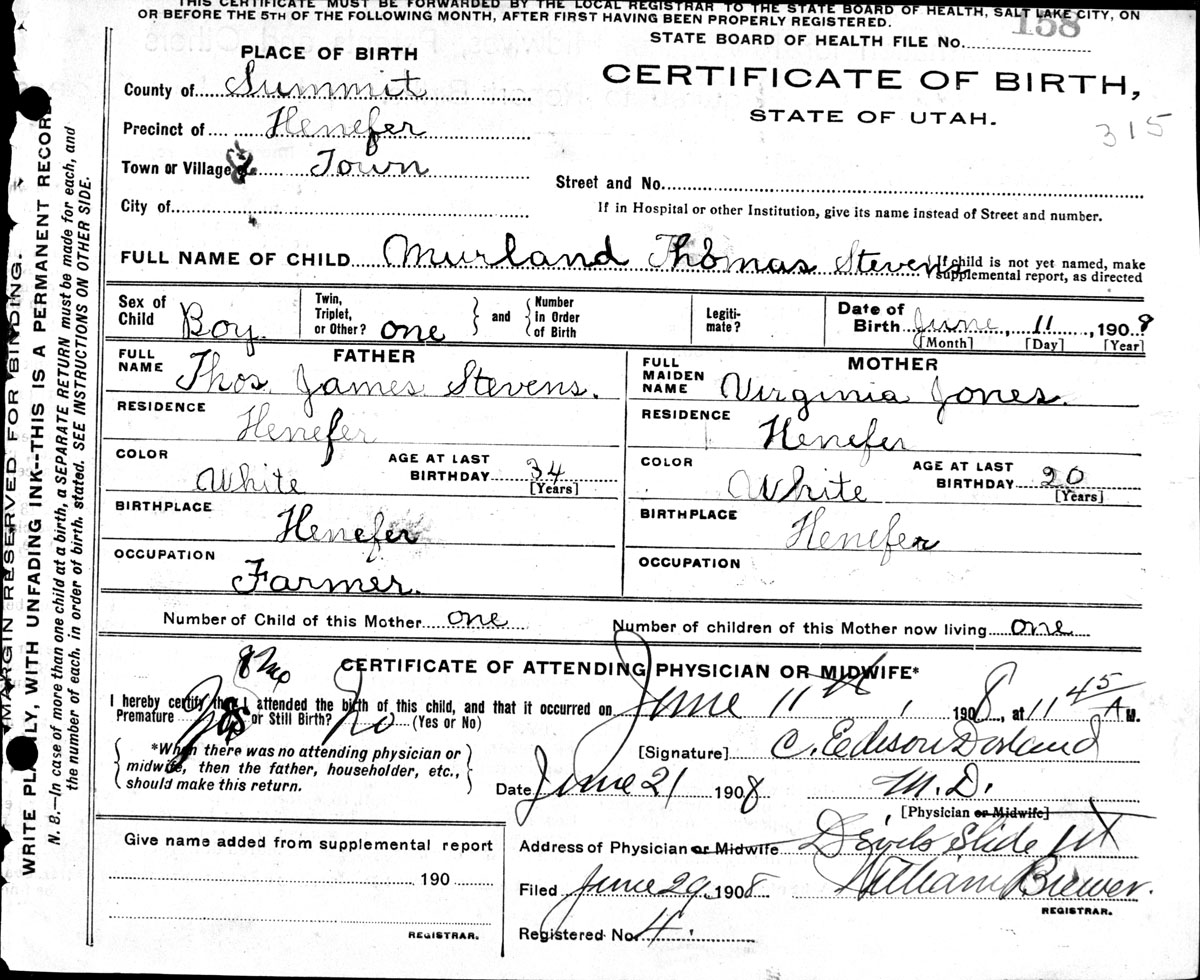 THIS CERTIFICATE MUST BE FORWARDED BY THE LOCAL REGISTRAR TO THE STATE BOARD OF HEALTH, SALT LAKE CITY, ON
OR BEFORE THE 5TH OF THE FOLLOWING MONTH, AFTER FIRST HAVING BEEN PROPERLY REGISTERED.
158
STATE BOARD OF HEALTH FILE No.
PLACE OF BIRTH
CERTIFICATE OF BIRTH,
STATE OF UTAH.
315
County of Summit
Precinct of Henefer
Town or Village Town
City of
Street and No.
If in Hospital or other Institution, give its name instead of Street and number.
FULL NAME OF CHILD Murland Thomas Stevens
If child is not yet named, make
supplemental report, as directed
Sex of Child Boy
Twin, Triplet, or Other? one
and
Number in Order of Birth
Legitimate?
Date of Birth June, 11, 1908
[Month] [Day] [Year]
FATHER
FULL NAME Thos. James Stevens.
RESIDENCE Henefer
COLOR White
AGE AT LAST BIRTHDAY 34
[Years]
BIRTHPLACE Henefer
OCCUPATION Farmer.
MOTHER
FULL MAIDEN NAME Virginia Jones.
RESIDENCE Henefer
COLOR White
AGE AT LAST BIRTHDAY 20
[Years]
BIRTHPLACE Henefer
OCCUPATION
Number of Child of this Mother one
Number of children of this Mother now living one
CERTIFICATE OF ATTENDING PHYSICIAN OR MIDWIFE*
8 Mo
I hereby certify that I attended the birth of this child, and that it occurred on June 11th, 1908, at 11 45 A M.
Premature Yes or Still Birth? No (Yes or No)
*When there was no attending physician or
midwife, then the father, householder, etc.,
should make this return.
[Signature] C. Edison Dorland
Date June 21 1908 M.D.
[Physician or Midwife]
Address of Physician or Midwife Devils Slide Ut
Filed June 29, 1908 William Brewer.
REGISTRAR.
Registered No. 4.
Give name added from supplemental report
190
REGISTRAR.
MARGIN RESERVED FOR BINDING.
WRITE PLAINLY, WITH UNFADING INK--THIS IS A PERMANENT RECORD
N. B.—In case of more than one child at a birth, a SEPARATE RETURN must be made for each, and
the number of each, in order of birth, stated. SEE INSTRUCTIONS ON OTHER SIDE.